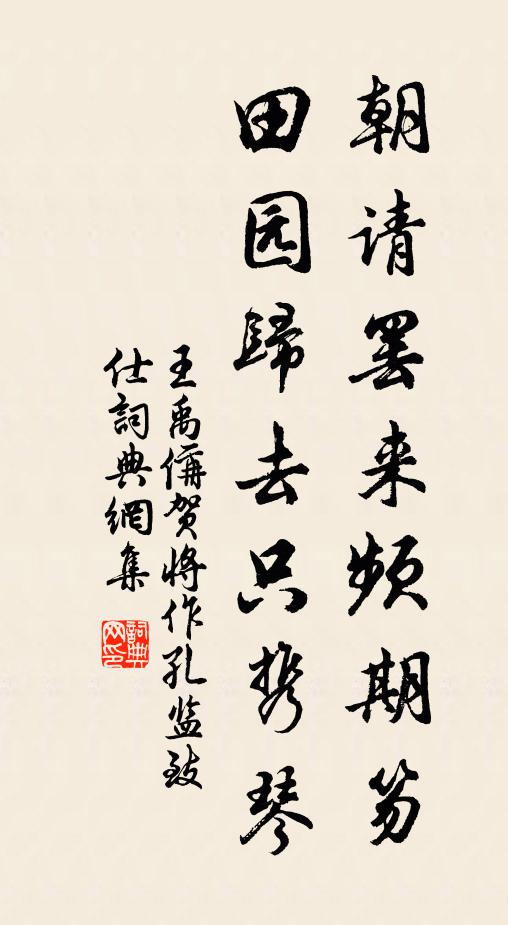 朝请罢来频期笏
田园歸去只携琴
王禹偁贺将作孔监致
仕詞典網集
詞典网印